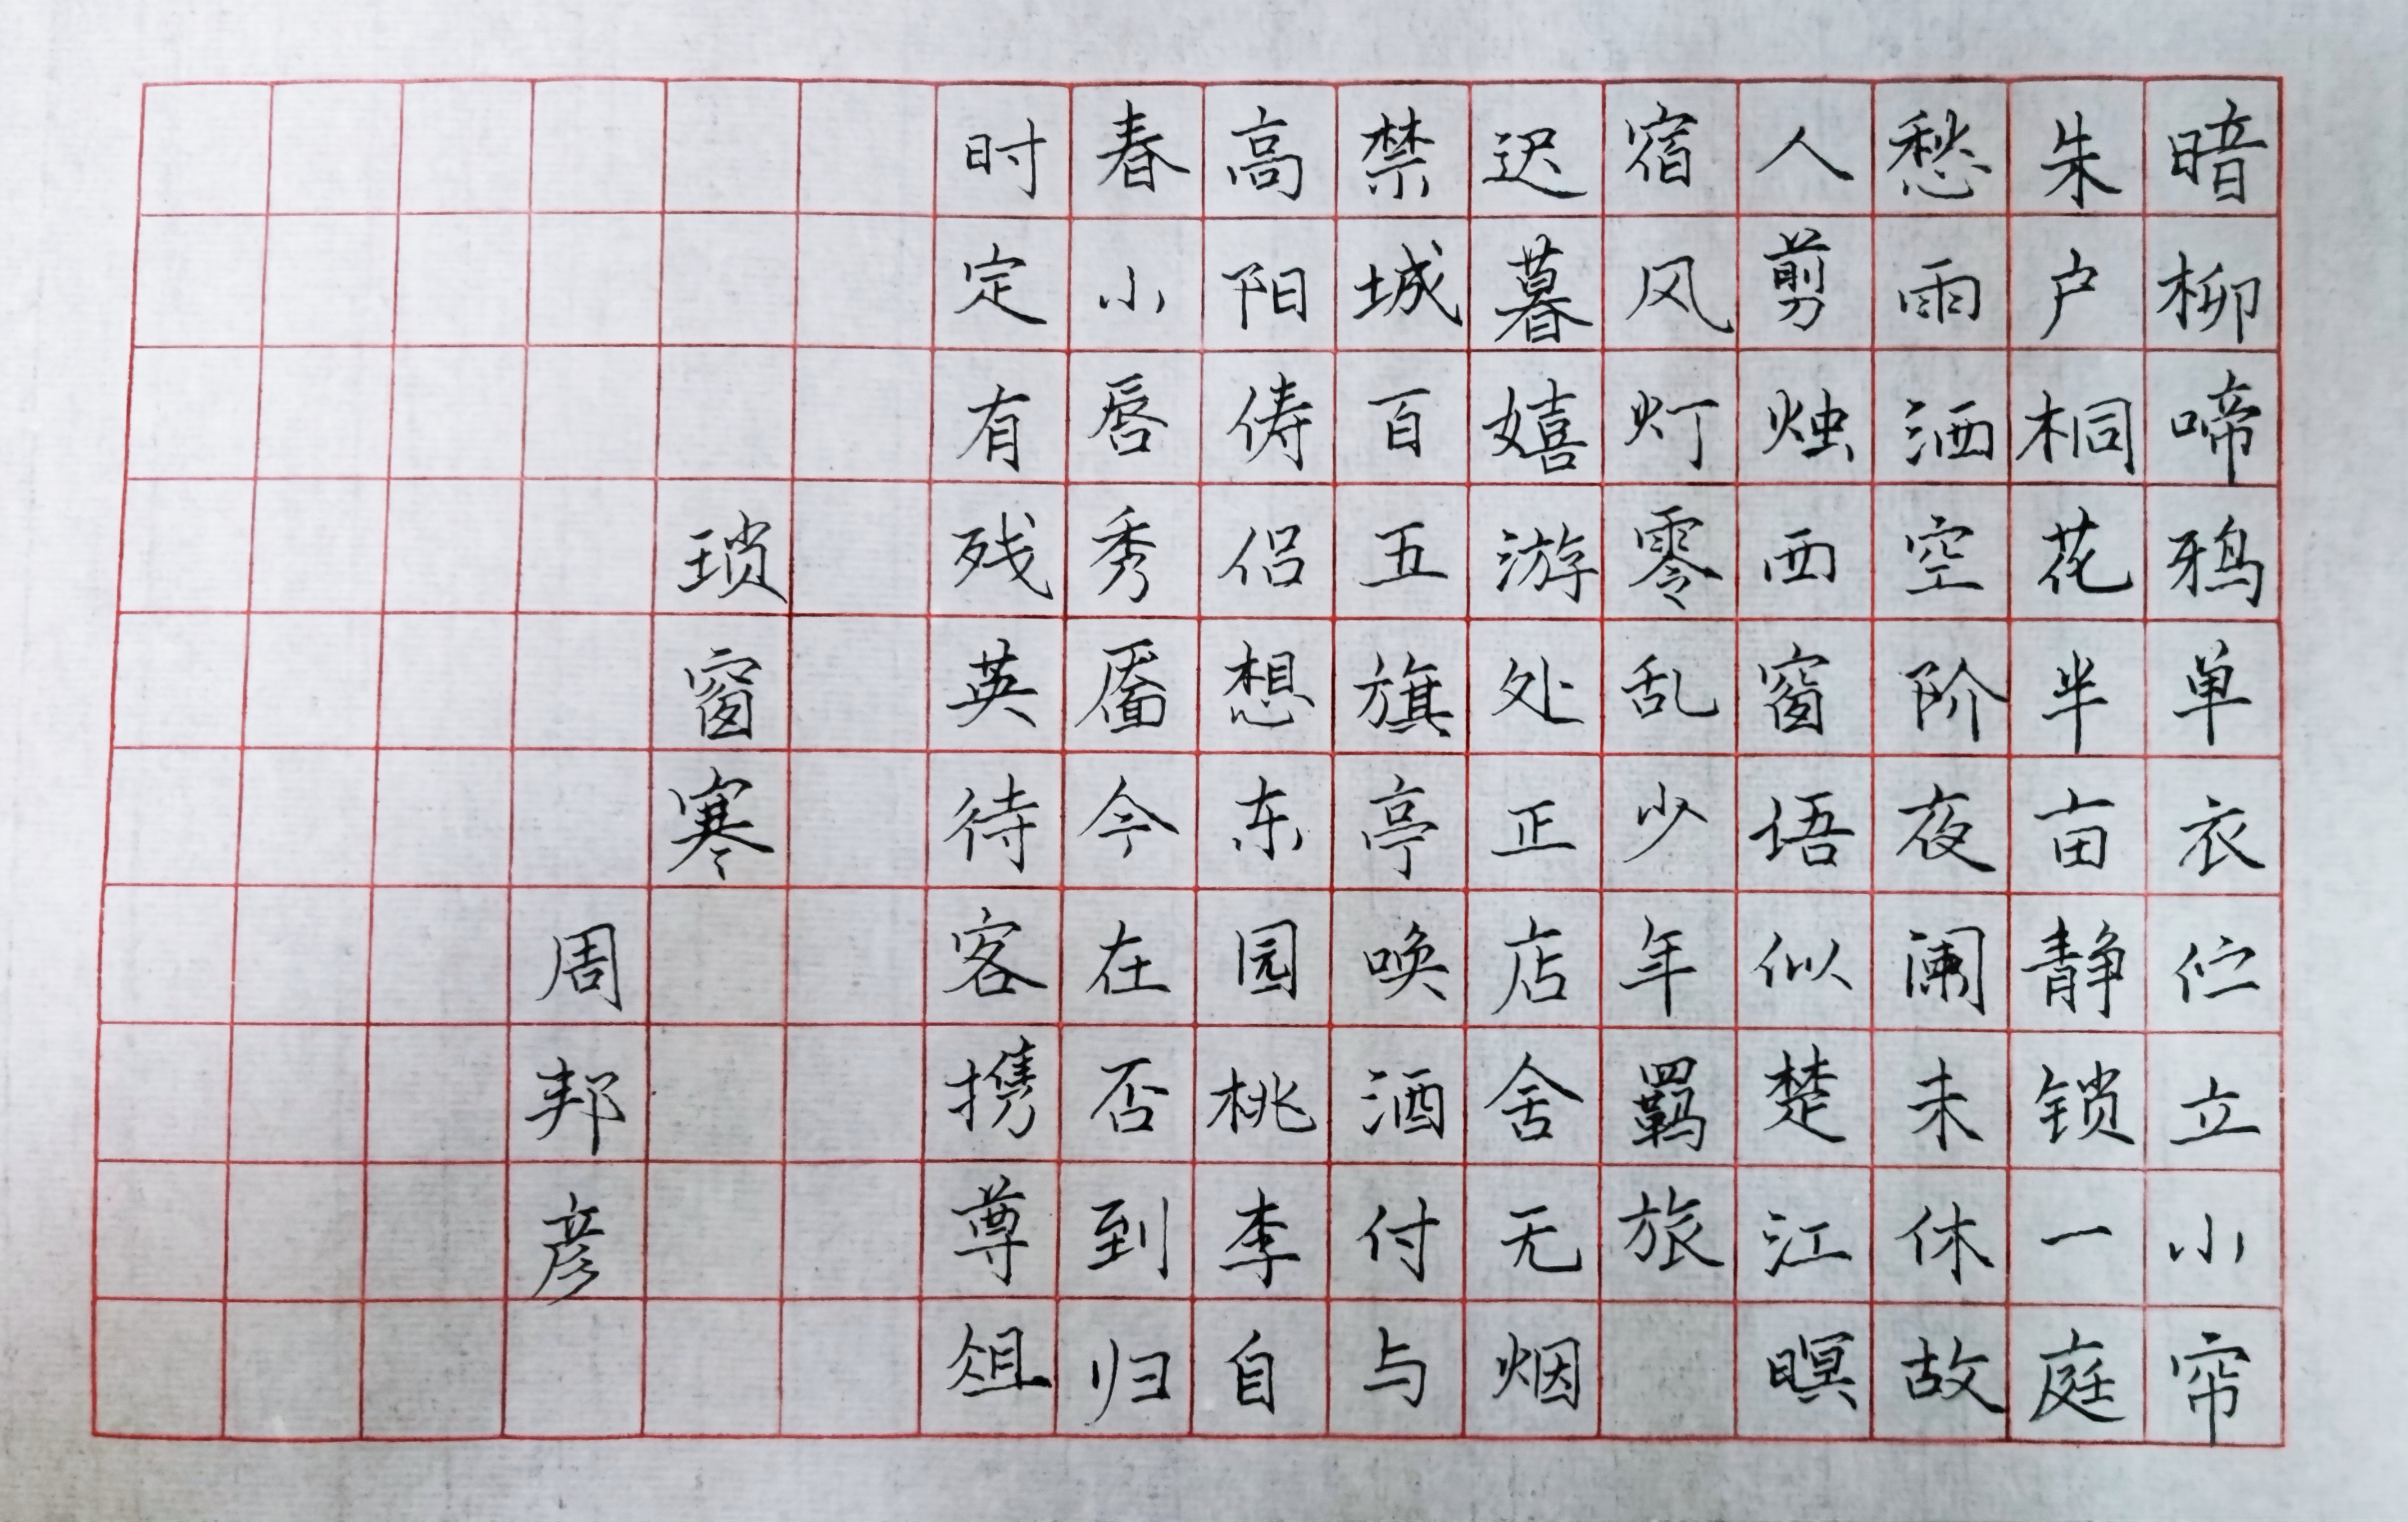 暗柳啼鸦单衣伫立小帘
朱户桐花半亩静锁一庭
愁雨洒空阶夜阑未休故
人剪烛西窗语似楚江暝
宿风灯零乱少年羁旅
迟暮嬉游处正店舍无烟
禁城百五旗亭唤酒付与
高阳俦侣想东园桃李自
春小唇秀靥今在否到归
时定有残英待客携尊俎
琐窗寒
周邦彦